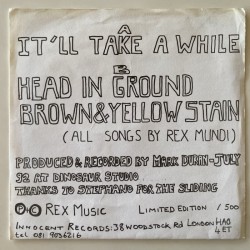 A
IT'LL TAKE A WHILE
B
HEAD IN GROUND
BROWN & YELLOW STAIN
(ALL SONGS BY REX MUNDI)
PRODUCED & RECORDED BY MARK DURN-JULY
92 AT DINOSAUR STUDIO
THANKS TO STEPHANO FOR THE SLIDING
Ⓟ © REX MUSIC LIMITED EDITION / 500
INNOCENT RECORDS: 38 WOODSTOCK RD LONDON HA0
tel 081 9036216 4ET